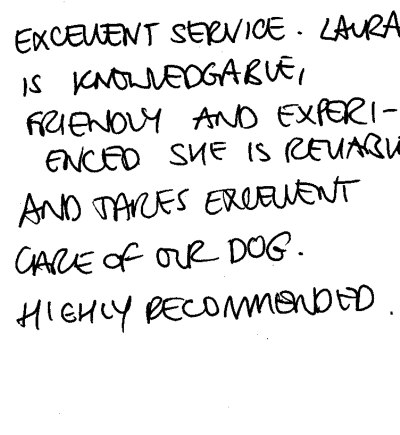 EXCELLENT SERVICE. LAURA
IS KNOWLEDGABLE,
FRIENDLY AND EXPERI-
ENCED SHE IS RELIABL
AND TAKES EXCELLENT
CARE OF OUR DOG.
HIGHLY RECOMMENDED.